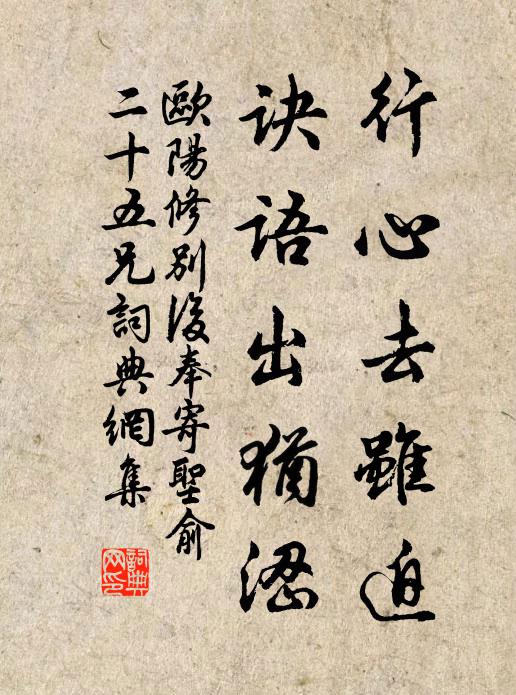 行心去雖迫
訣語出猶澀
歐陽修別後奉寄聖俞
二十五兄詞典網集
詞典
网印